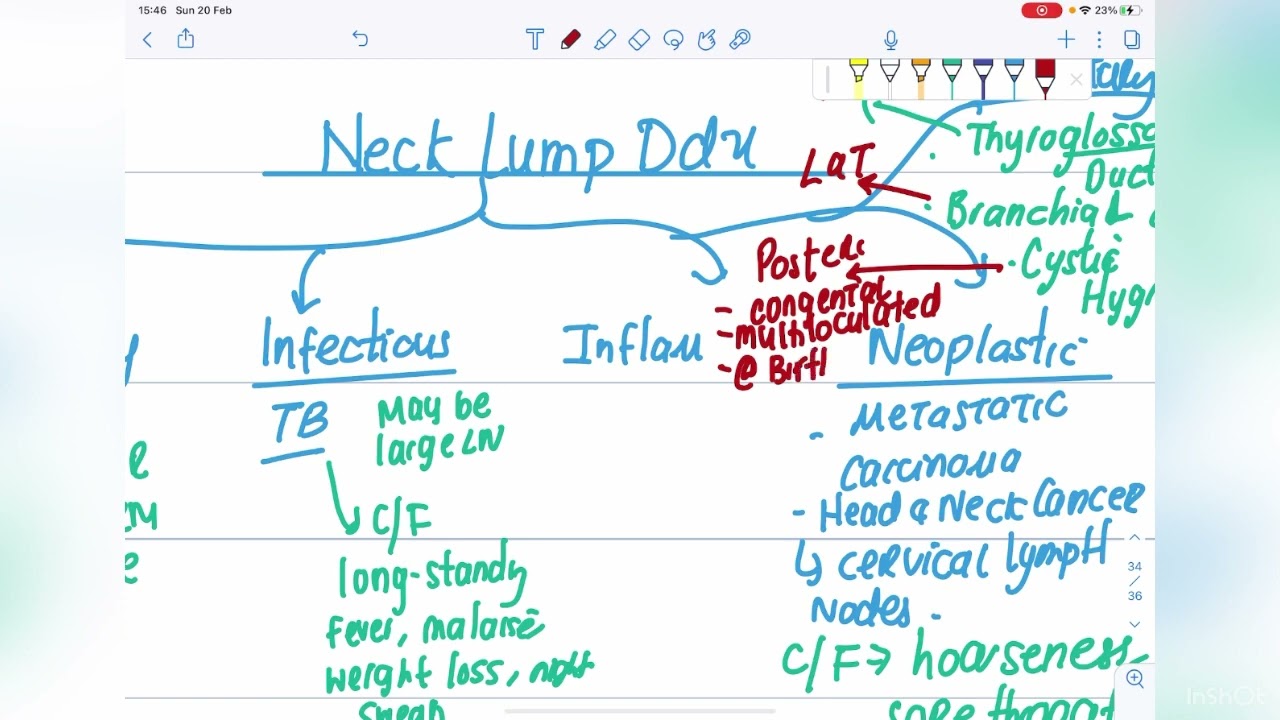 15:46 Sun 20 Feb
23%
T
Neck Lump Ddx
Thyroglosso
Duct
LaT
Branchial
Poster:
Cystic
Hygr
- congental
- multiloculated
- @ Birth
Infectious
Inflam
Neoplastic
TB
May be
large LN
- Metastatic
Carcinoma
C/F
- Head & Neck Cancer
↳ cervical lymph
Nodes -
long-standy
fever, malaise
weight loss, night
C/F → hoarseness,
34
/
36
InShOt